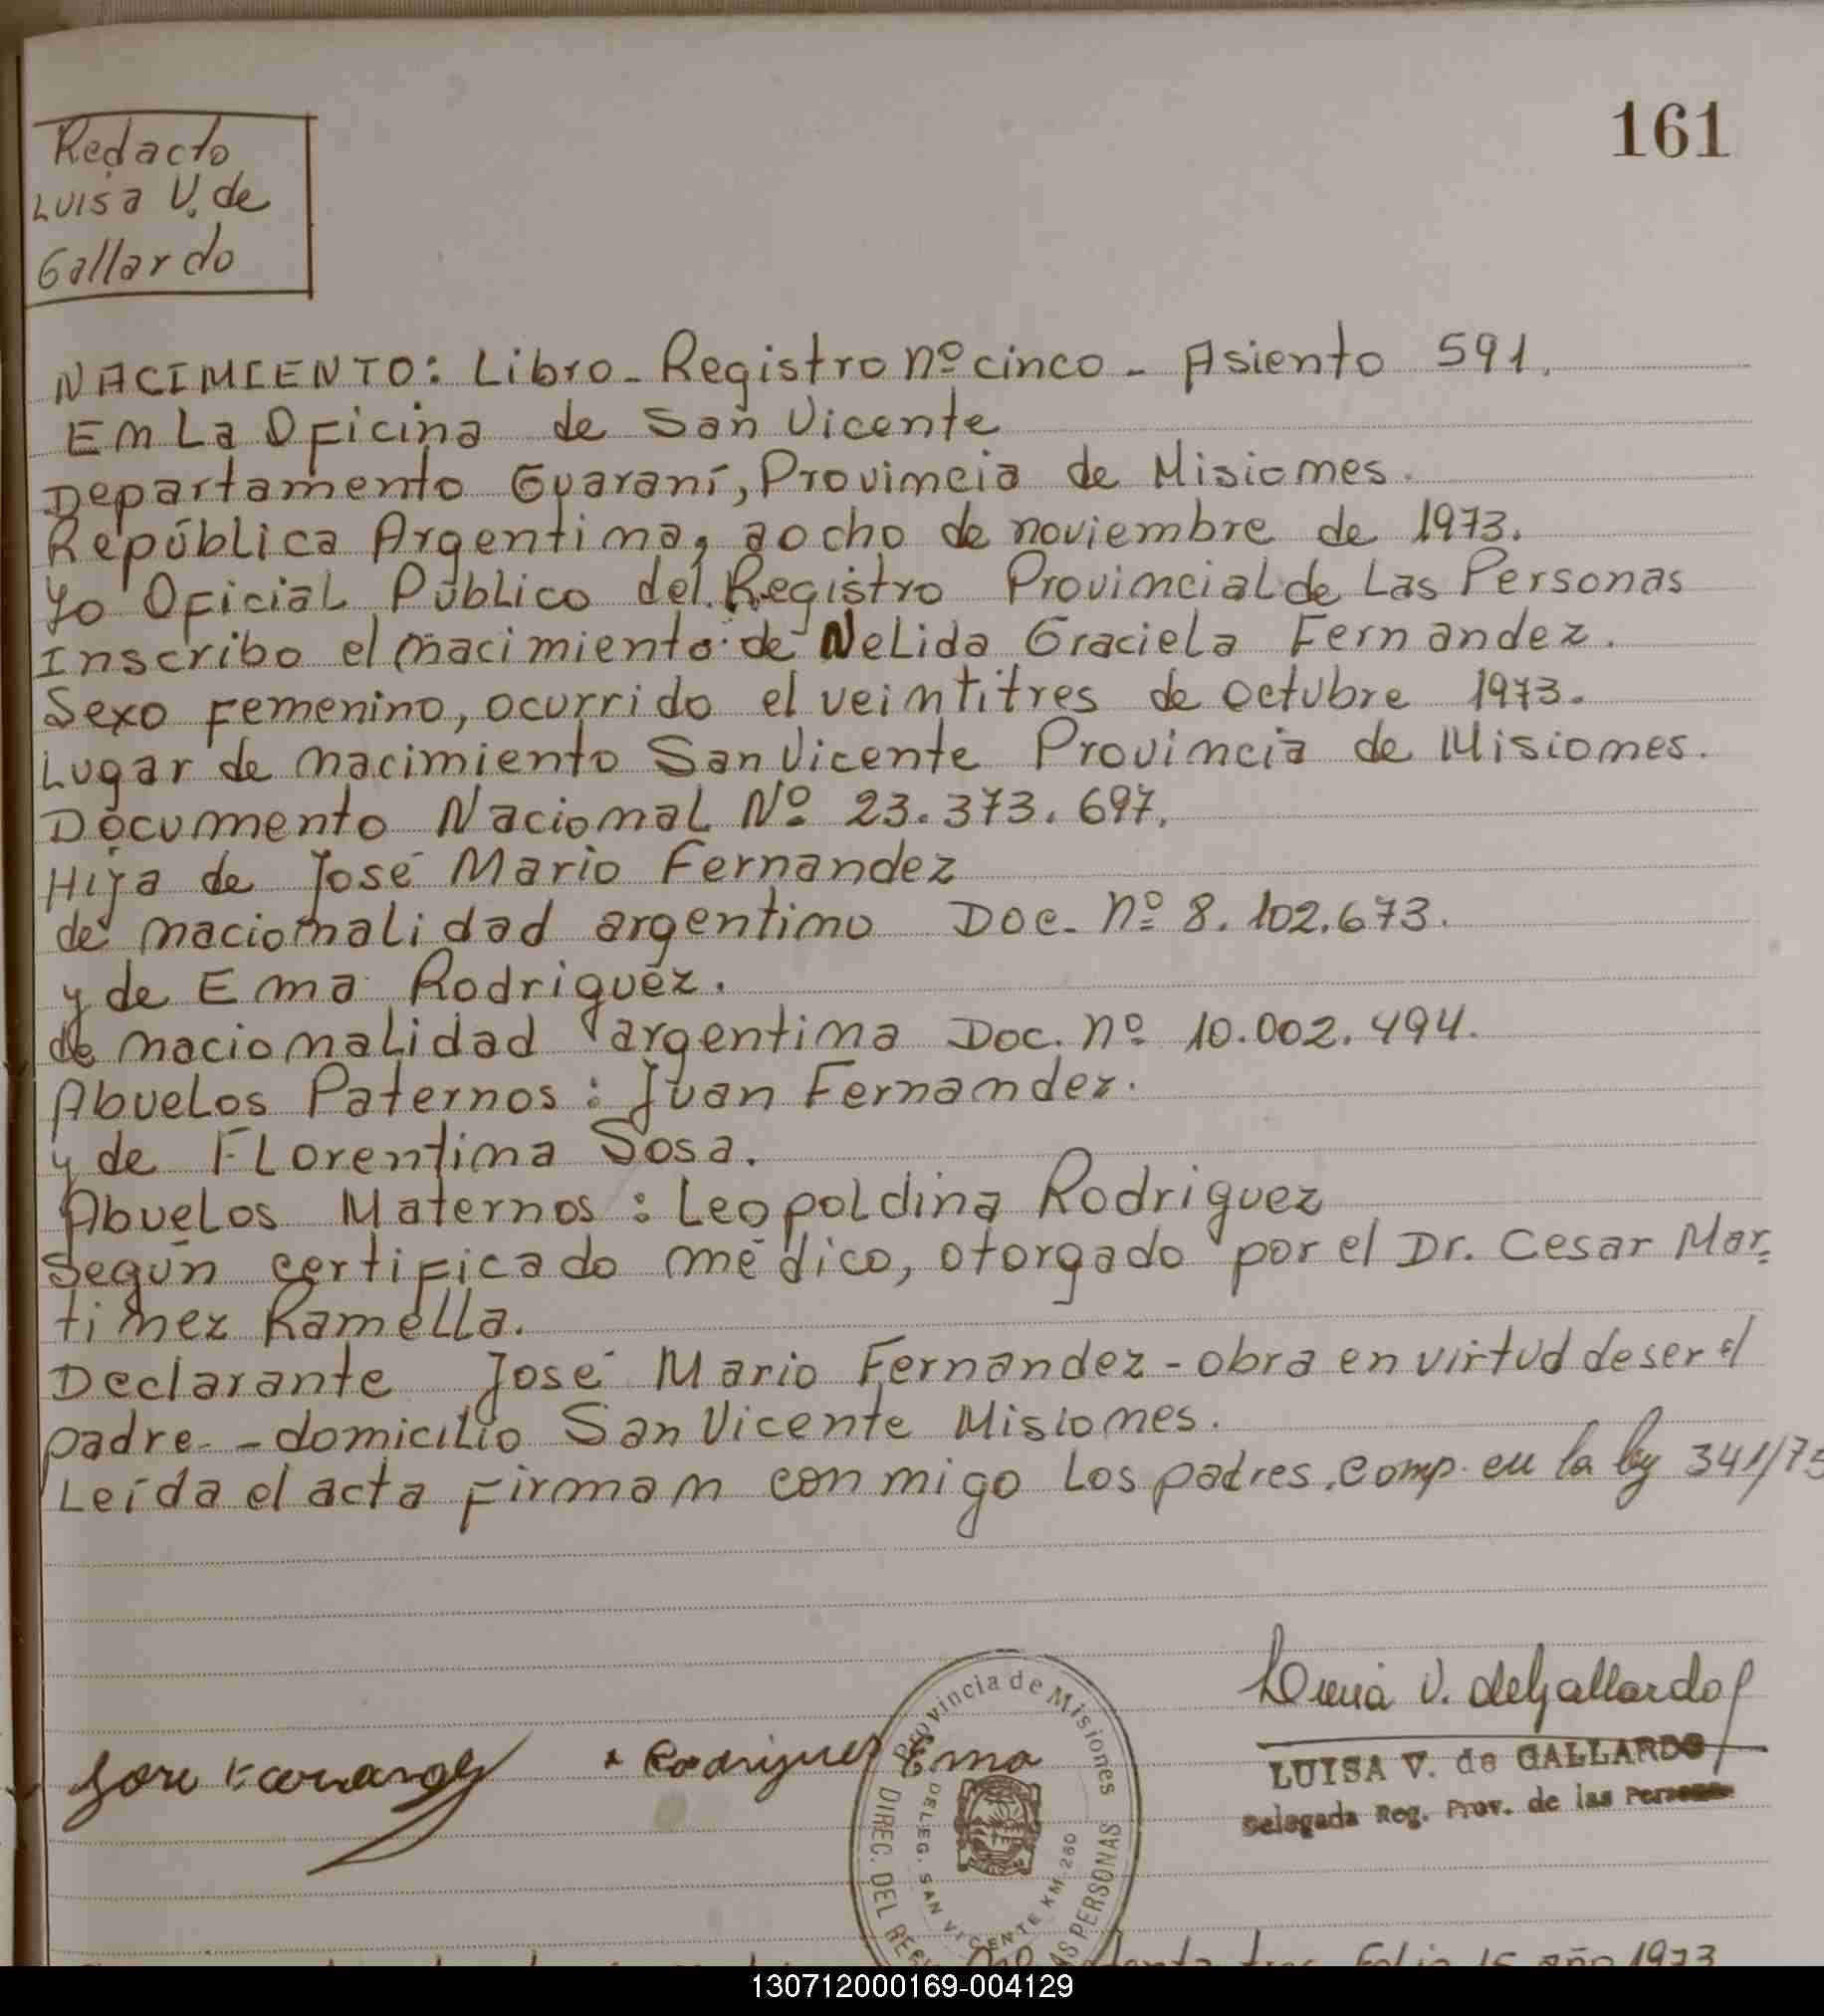 161
Redacto
Luisa V. de
Gallardo
NACIMIENTO: Libro - Registro nº cinco - Asiento 591.
En La Oficina de San Vicente
Departamento Guaraní, Provincia de Misiones.
República Argentina, a ocho de noviembre de 1973.
Yo Oficial Público del Registro Provincial de Las Personas
Inscribo el nacimiento de Nelida Graciela Fernandez.
Sexo Femenino, ocurrido el veintitres de octubre 1973.
Lugar de nacimiento San Vicente Provincia de Misiones.
Documento Nacional Nº 23.373.697.
Hija de José Mario Fernandez
de nacionalidad argentino Doc. nº 8.102.673.
y de Ema Rodriguez.
de nacionalidad argentina Doc. nº 10.002.494.
Abuelos Paternos: Juan Fernandez.
y de Florentina Sosa.
Abuelos Maternos: Leopoldina Rodriguez
Según certificado médico, otorgado por el Dr. Cesar Mar-
tinez Ramella.
Declarante José Mario Fernandez - obra en virtud de ser el
padre - domicilio San Vicente Misiones.
Leída el acta firman conmigo los padres. comp. en la ley 341/73
Luisa V. de Gallardo
Rodriguez Ema
LUISA V. de GALLARDO
Delegada Reg. Prov. de las Personas
Provincia de Misiones
DIREC. DEL
AS PERSONAS
DELEG. SAN VICENTE KM-260
Folio 15 año 1973
130712000169-004129